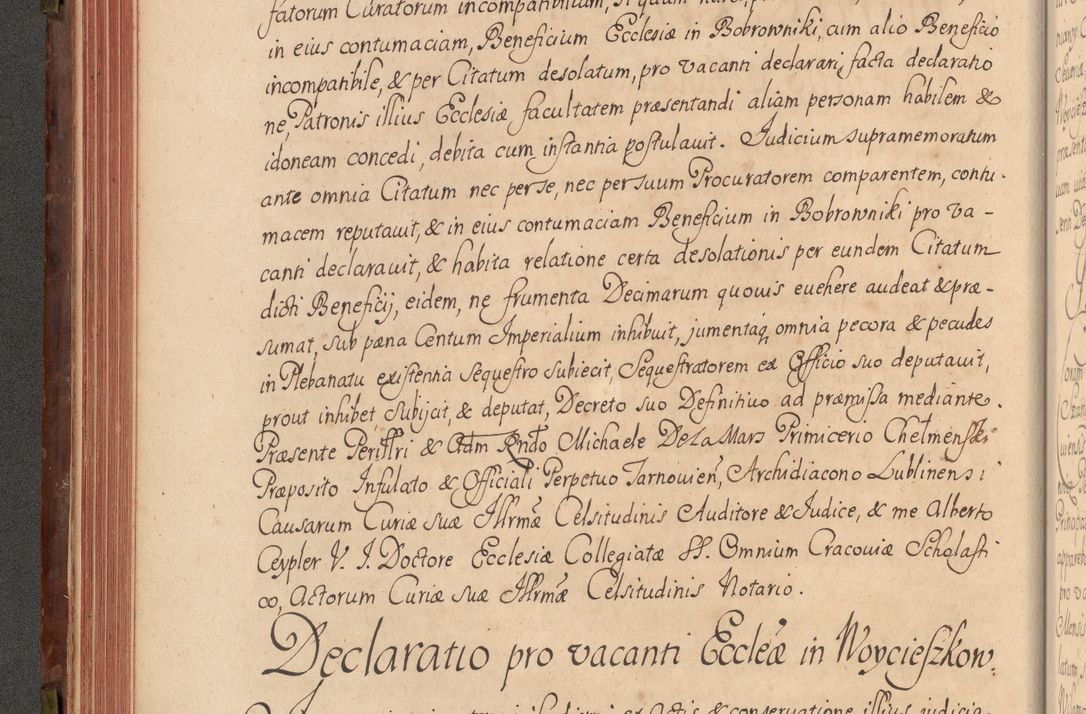 fatorum Curatorum incompatibilium, si quam
in eius contumaciam, Beneficium Ecclesiæ in Bobrowniki, cum alio Beneficio
incompatibile, & per Citatum desolatum, pro vacanti declarari, facta declaratio
ne, Patronis illius Ecclesiæ facultatem præsentandi aliam personam habilem &
idoneam concedi, debita cum instantia postulavit. Judicium supramemoratum
ante omnia Citatum nec per se, nec per suum Procuratorem comparentem, contu-
macem reputavit, & in eius contumaciam Beneficium in Bobrowniki pro va-
canti declaravit, & habita relatione certa desolationis per eundem Citatum
dicti Beneficij, eidem, ne frumenta Decimarum quovis evehere audeat & præ-
sumat, sub pæna Centum Imperialium inhibuit, jumentaq omnia pecora & pecudes
in Plebanatu existentia Sequestro subiecit, Sequestratorem ex Officio suo deputavit,
prout inhibet, subijcit, & deputat, Decreto suo Definitivo ad præmissa mediante.
Præsente Perillri & Adm Rndo Michaele De La Mars Primicerio Chełmenski
Præposito Infulato & Officiali Perpetuo Tarnovien, Archidiacono Lublinensi
Causarum Curiæ suæ Illrmæ Celsitudinis Auditore & Judice, & me Alberto
Ceypler V. I. Doctore Ecclesiæ Collegiatæ SS. Omnium Cracoviæ Scholasti
co, Actorum Curiæ suæ Illrmæ Celsitudinis Notario.
Declaratio pro vacanti Eccleæ in Woycieszkow.
ex Actis & conservatione illius judicia